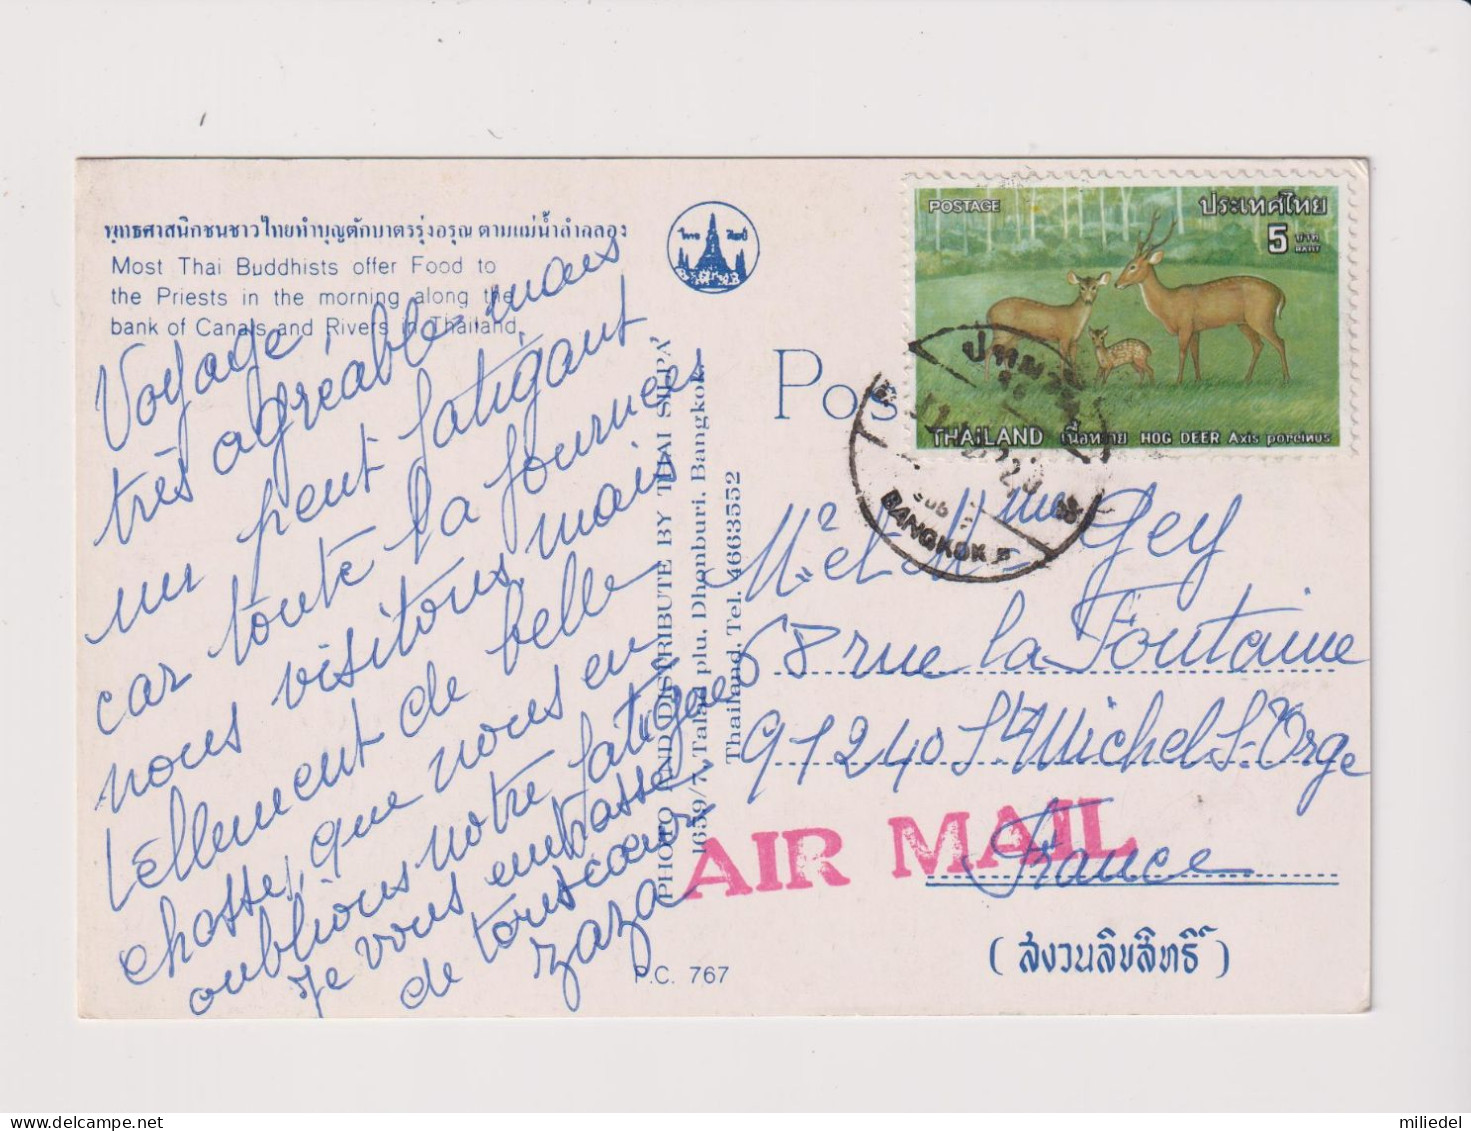 พุทธศาสนิกชนชาวไทยทำบุญตักบาตรรุ่งอรุณ ตามแม่น้ำลำคลอง
Most Thai Buddhists offer Food to
the Priests in the morning along the
bank of Canals and Rivers in Thailand.
Voyage
très agréable mais
un peut fatigant
car toute la journées
nous visitons mais
tellement de belle
chosse, que nous en
oublions notre fatigue
Je vous embrasse
de tous cœur
zaza
P.C. 767
PHOTO AND DISTRIBUTE BY THAI SILPA'
1659/7, Talad plu, Dhonburi, Bangkok,
Thailand, Tel. 4663552
ไทย ศิลป์
Pos
POSTAGE
ประเทศไทย
5 บาท
BAHT
THAILAND เนื้อทราย HOG DEER Axis porcinus
BANGKOK
Mr et Mme Gey
68 rue la Fontaine
91240 St Michel S-Orge
France
AIR MAIL
(สงวนลิขสิทธิ์)
miliedel